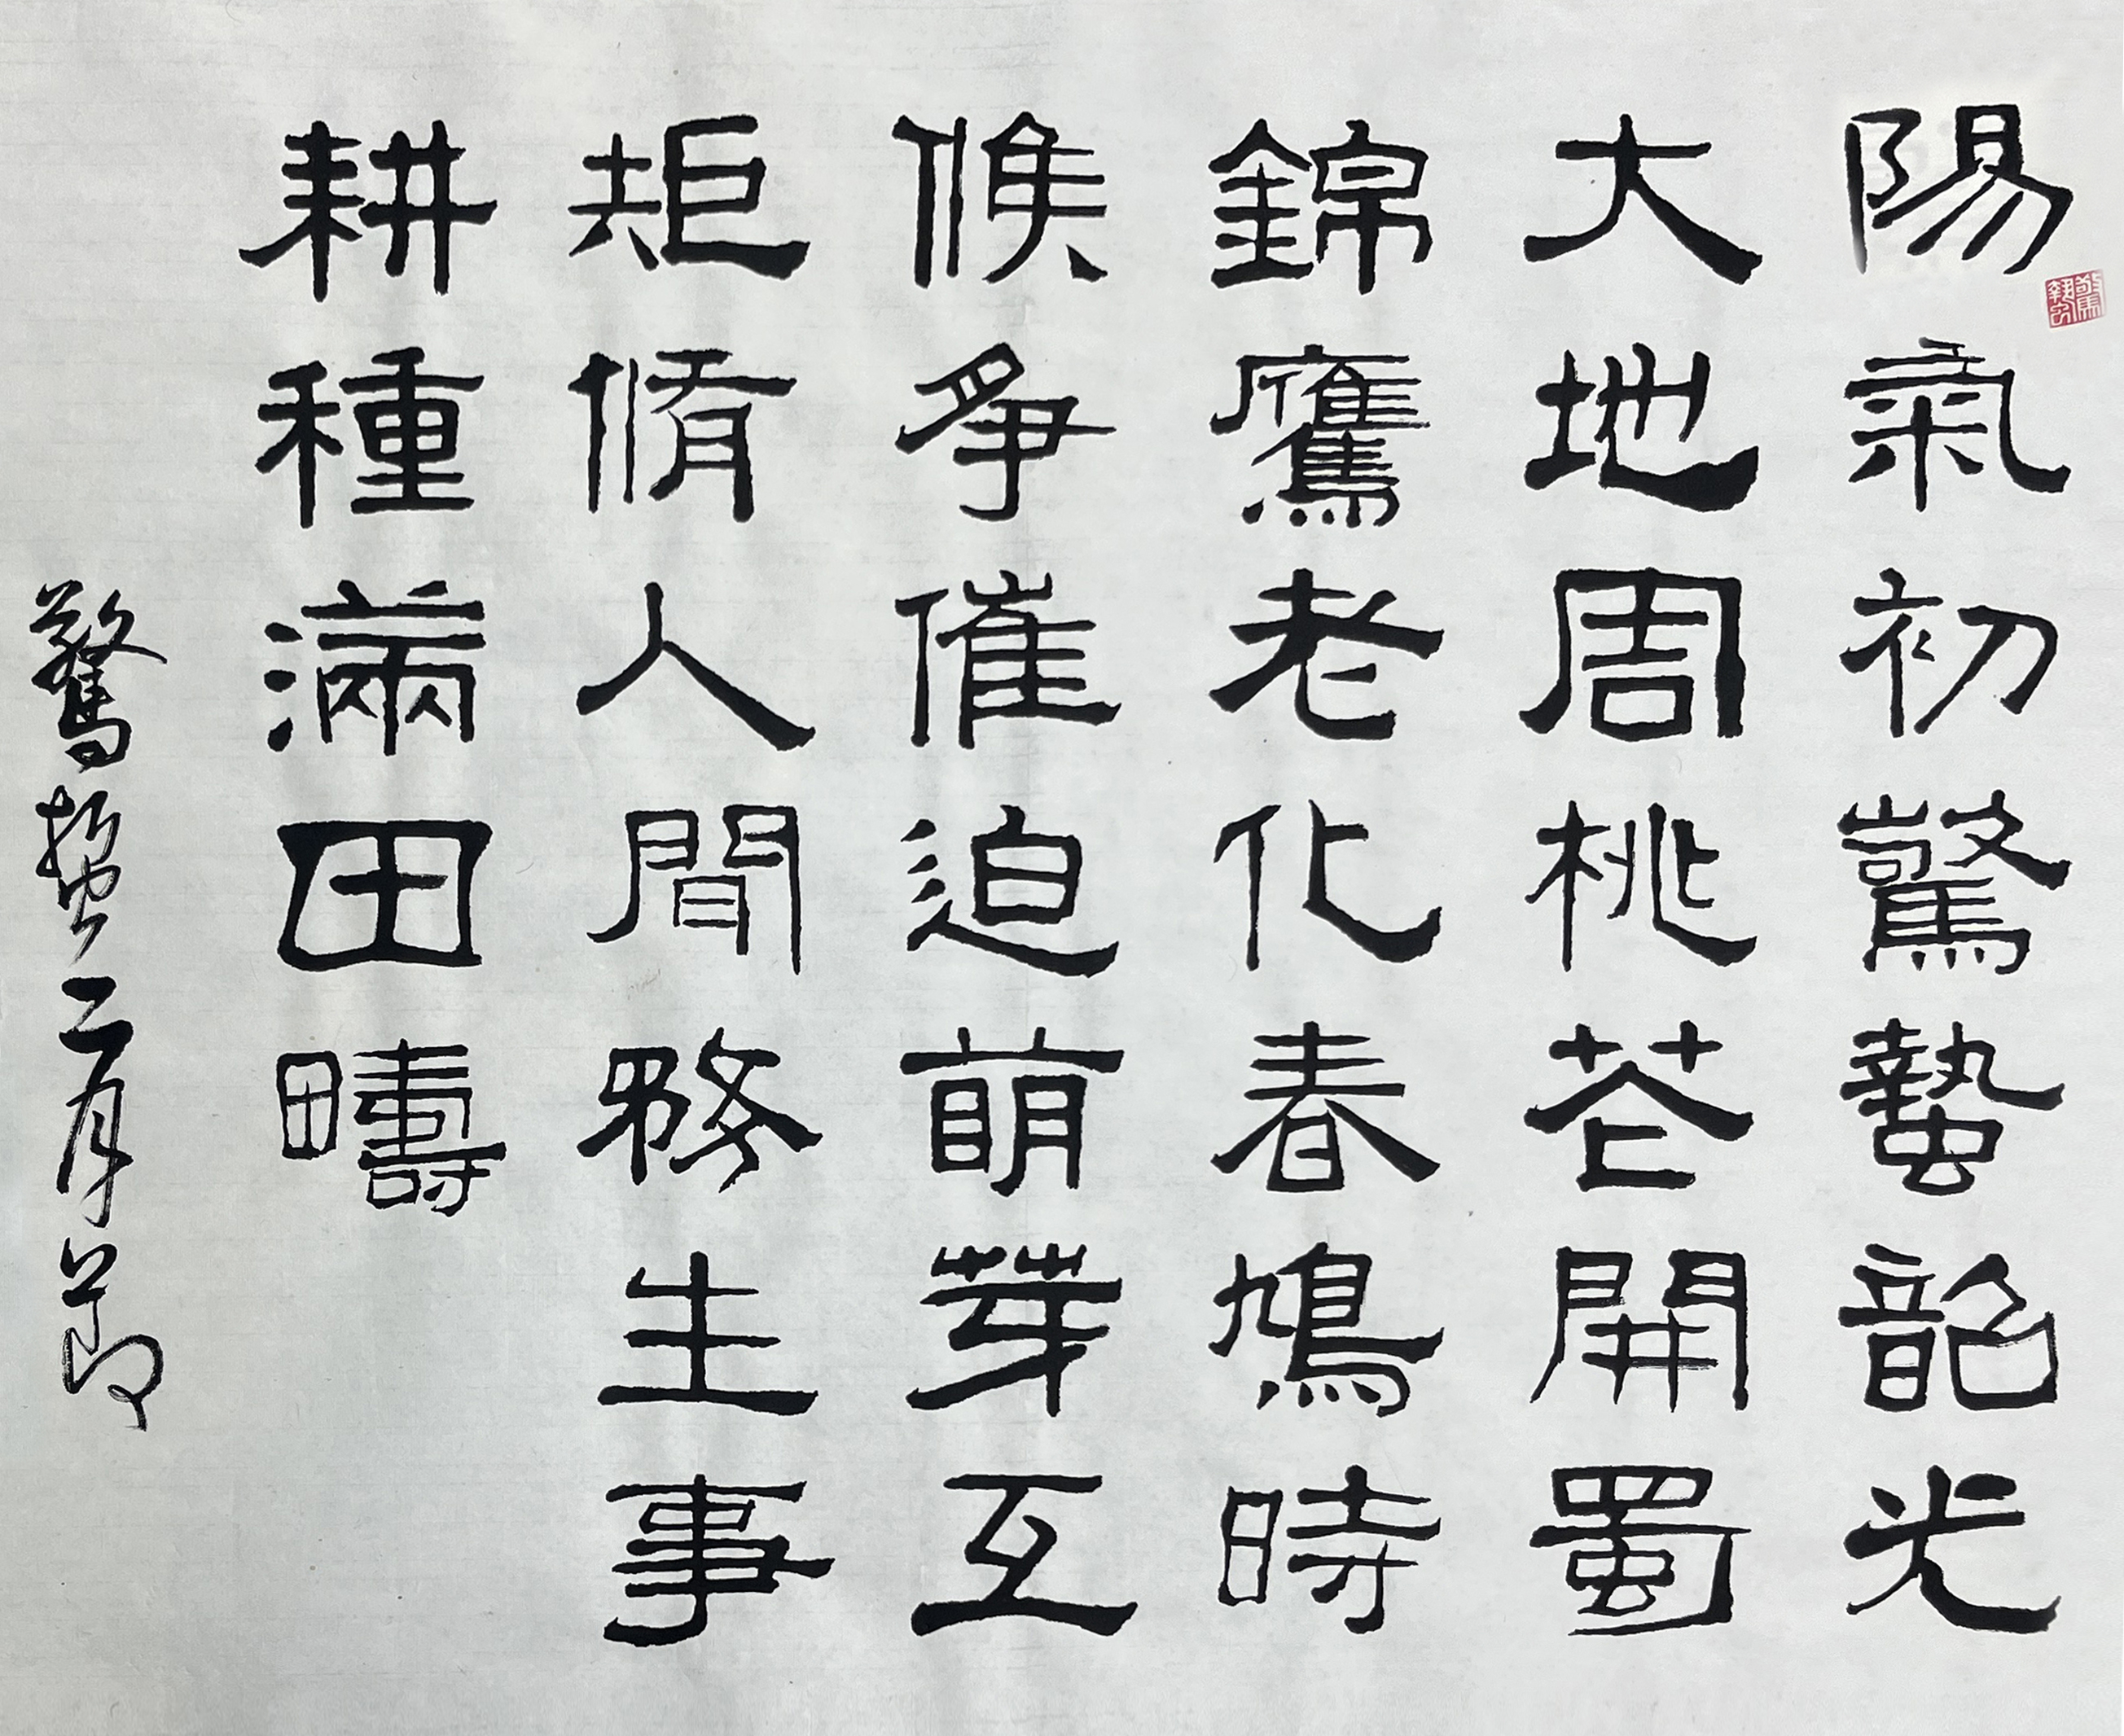 陽氣初驚蟄韶光
大地周桃花開蜀
錦鷹老化春鳩時
候爭催迫萌芽互
矩脩人間務生事
耕種滿田疇
驚蟄二月節